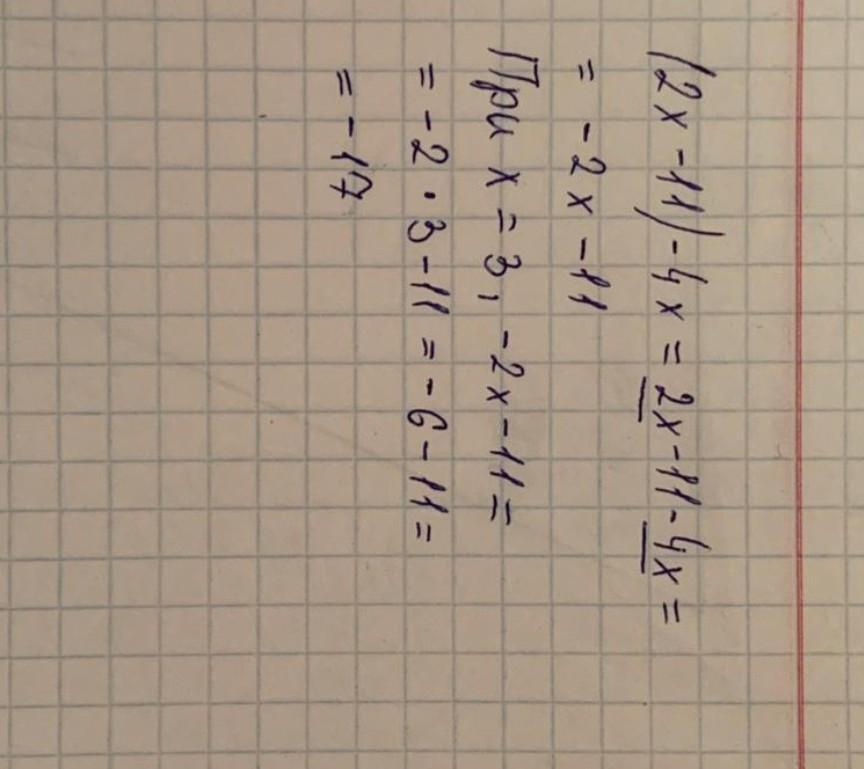 (2x - 11) - 4x = 2x - 11 - 4x =
= - 2x - 11
При x = 3, - 2x - 11 =
= - 2 · 3 - 11 = - 6 - 11 =
= - 17